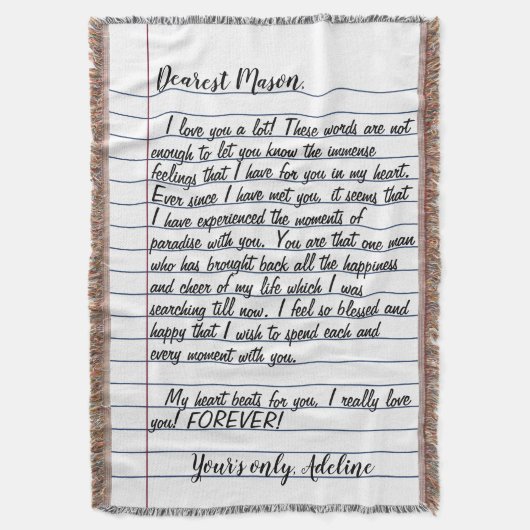 Dearest Mason,
I love you a lot! These words are not
enough to let you know the immense
feelings that I have for you in my heart.
Ever since I have met you, it seems that
I have experienced the moments of
paradise with you. You are that one man
who has brought back all the happiness
and cheer of my life which I was
searching till now. I feel so blessed and
happy that I wish to spend each and
every moment with you.
My heart beats for you. I really love
you! FOREVER!
Your's only, Adeline